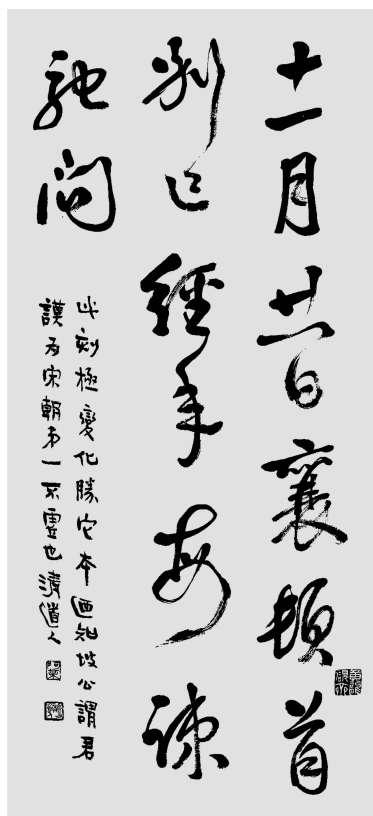 十一月廿一日襄頓首
別已經年每疎
馳問
此刻極變化勝它本迺知坡公謂君
謨為宋朝弟一不虛也清道人